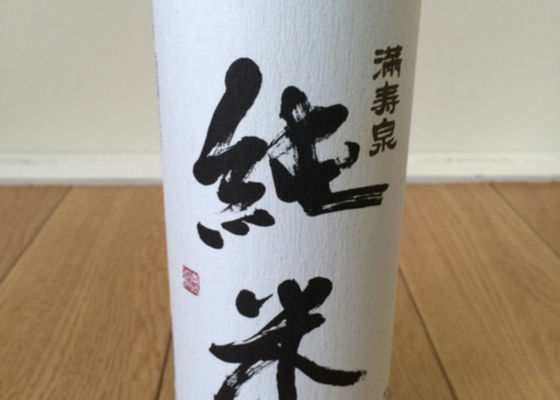 満寿泉
純米